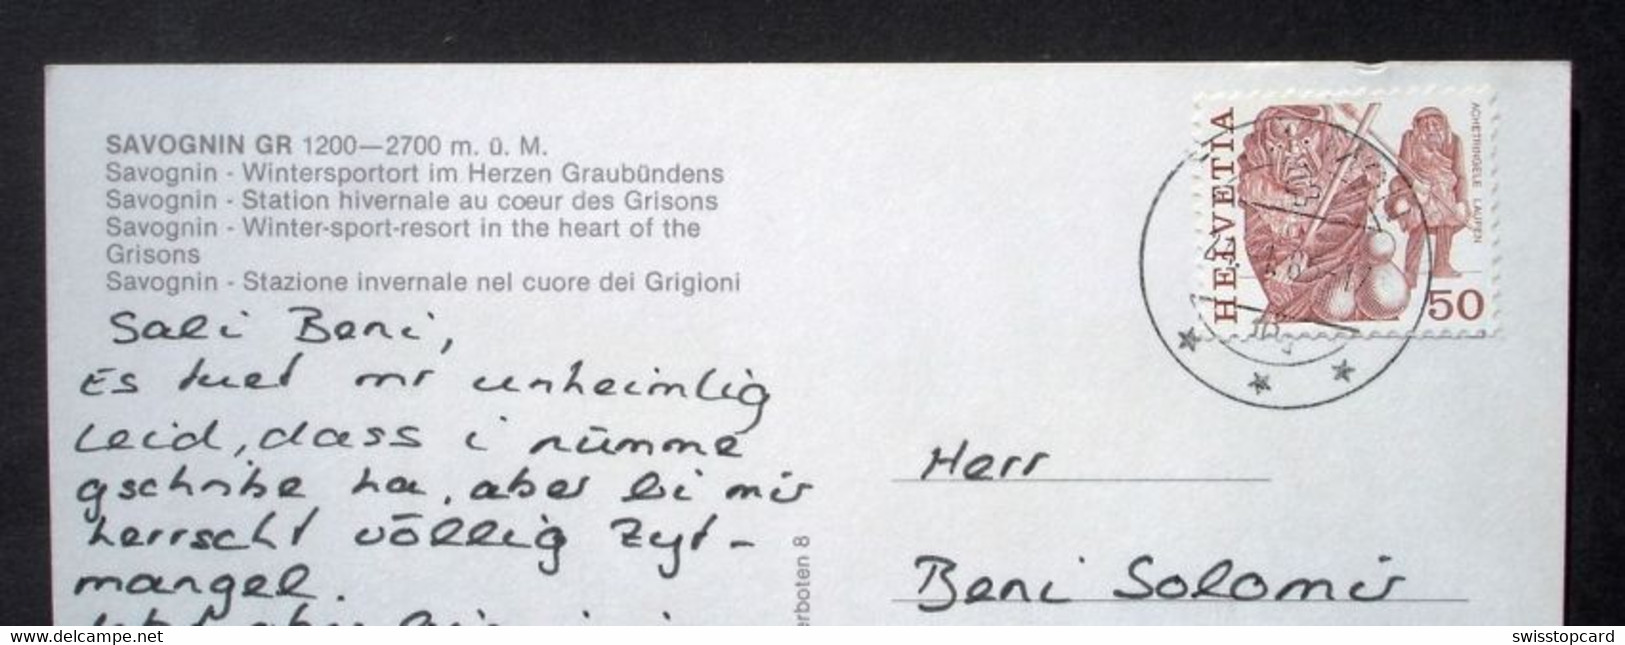 SAVOGNIN GR 1200—2700 m. ü. M.
Savognin - Wintersportort im Herzen Graubündens
Savognin - Station hivernale au cœur des Grisons
Savognin - Winter-sport-resort in the heart of the
Grisons
Savognin - Stazione invernale nel cuore dei Grigioni
Sali Beni,
Es tuet mr unheimlig
Leid, dass i nümme
gschribe ha, aber bi mir
herrscht völlig Zyt-
mangel.
erboten 8
HELVETIA
ACHETRINGELE LAUPEN
50
Herr
Beni Solomir
www.delcampe.net
swisstopcard